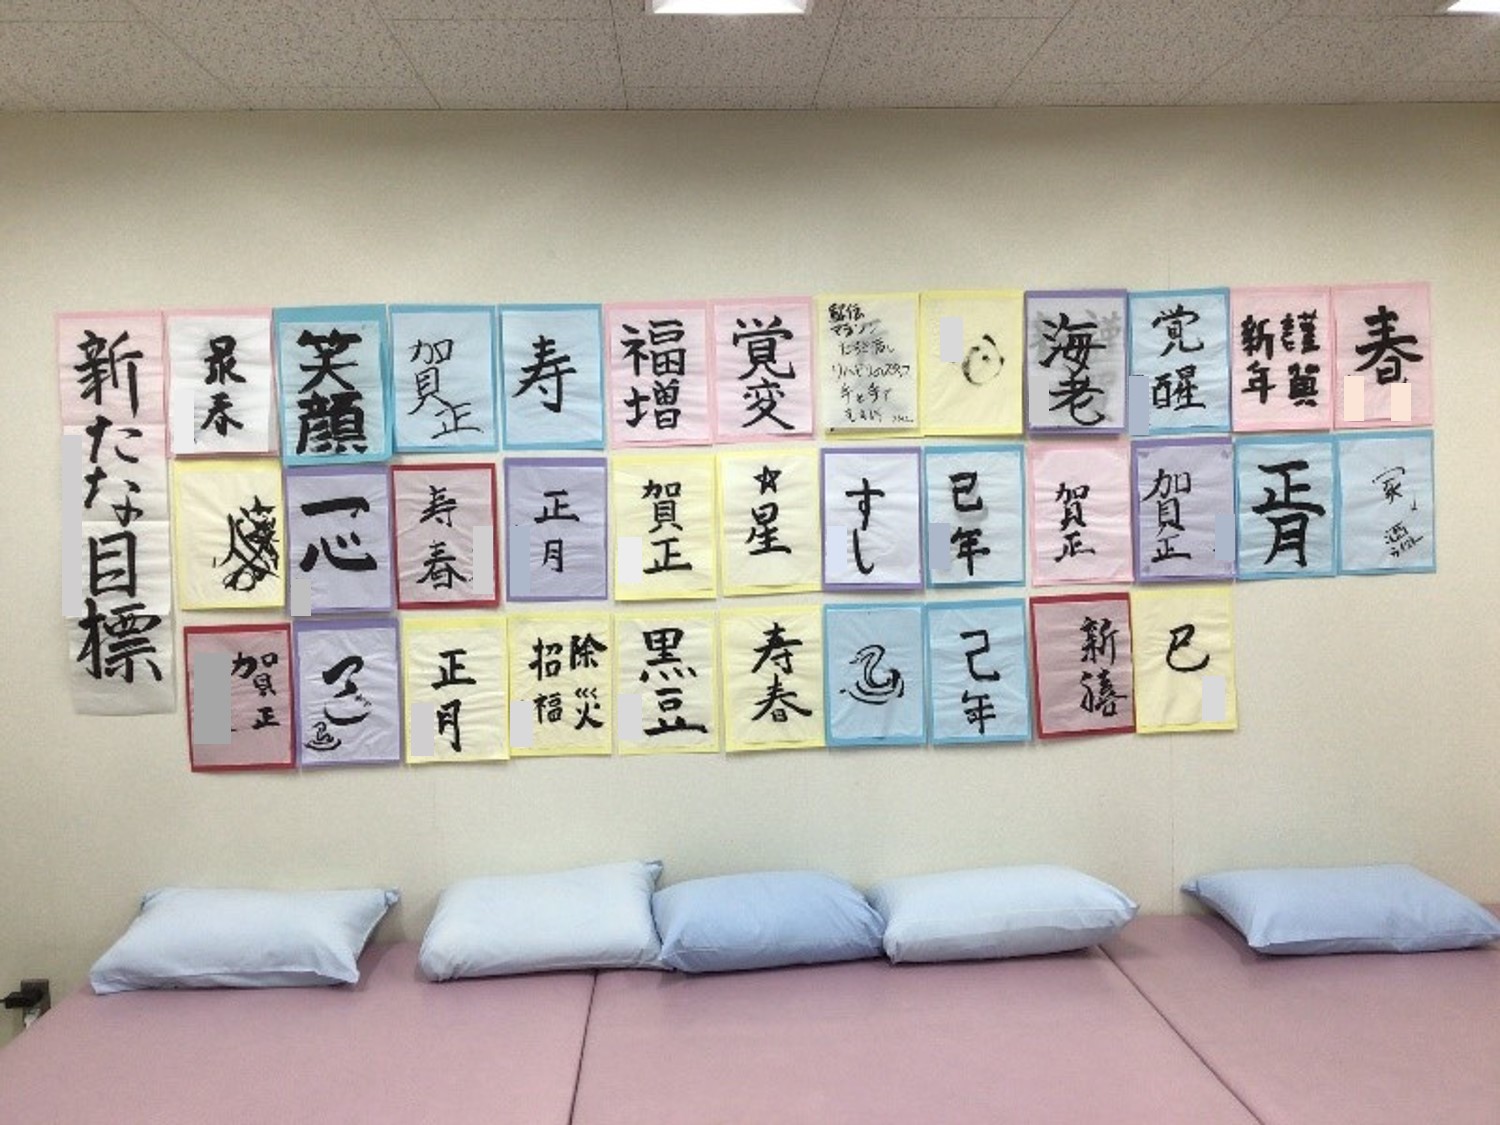 新たな目標
最春
笑顔
賀正
寿
福増
覚変
駅伝
マラソン
たらご渡し
リハビリのスタッフ
手と手で
海老
覚醒
謹賀
新年
春
一心
寿春
正月
賀正
☆星
すし
己年
賀正
賀正
正月
賀正
正月
除災
招福
黒豆
寿春
己年
新禧
巳